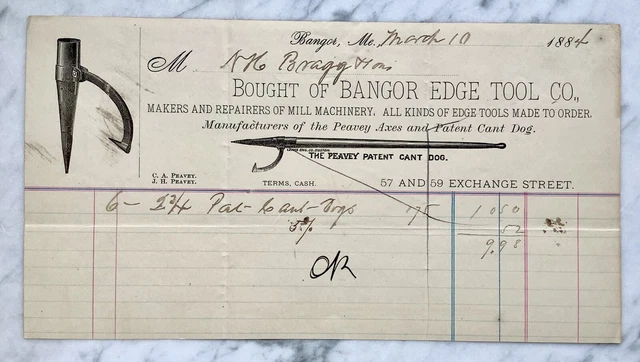 Bangor, Me, March 10 1884
M N H Bragg & Sons
BOUGHT OF BANGOR EDGE TOOL CO.,
MAKERS AND REPAIRERS OF MILL MACHINERY. ALL KINDS OF EDGE TOOLS MADE TO ORDER.
Manufacturers of the Peavey Axes and Patent Cant Dog.
THE PEAVEY PATENT CANT DOG.
C. A. PEAVEY.
J. H. PEAVEY.
TERMS, CASH.
57 AND 59 EXCHANGE STREET.
6 - 2 3/4 Pat- Cant-Dogs 175 10 50
5% 52
9.98
OK